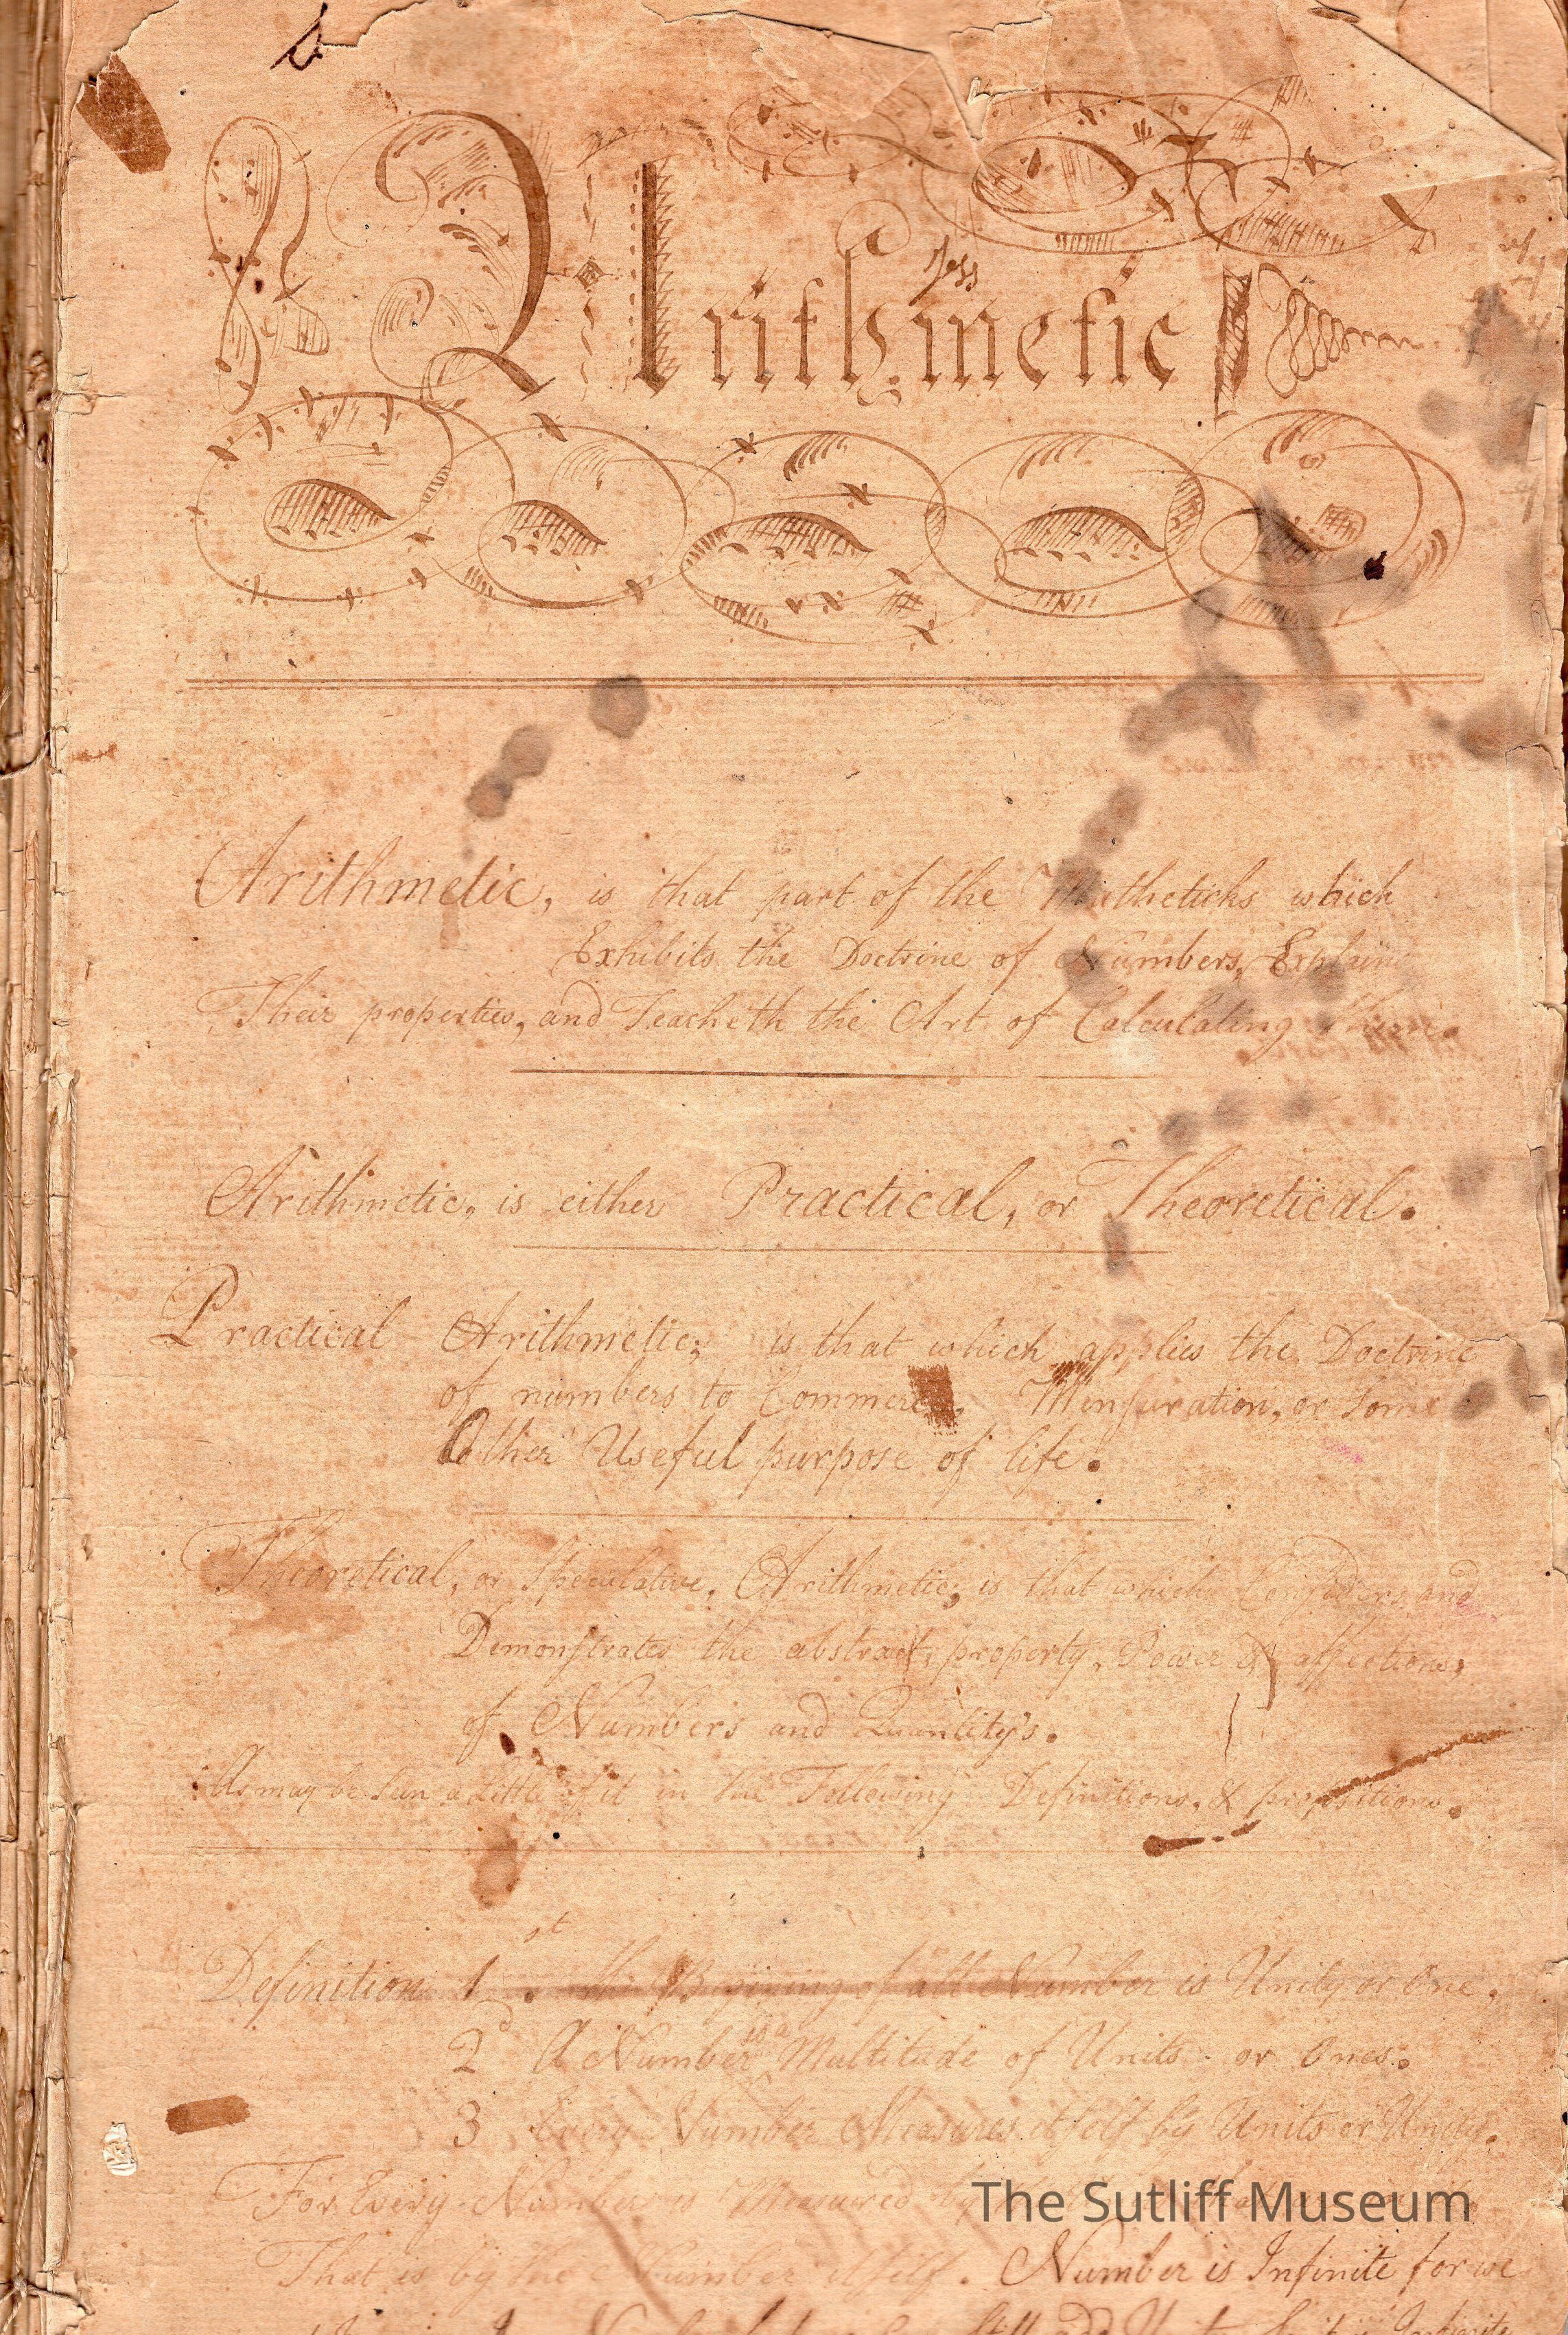 Arithmetic
Arithmetic, is that part of the Matheticks which
Exhibits the Doctrine of Numbers, Explains
Their properties, and Teacheth the Art of Calculating them.
Arithmetic, is either Practical, or Theoretical.
Practical Arithmetic, is that which applies the Doctrine
of numbers to Commerce, Menſuration, or Some
Other Useful purpose of life.
Theoretical, or Speculative, Arithmetic, is that which Conſiders and
Demonſtrates the abstract, property, Power & affections,
of Numbers and Quantity's.
As may be Seen a Little of it in the Following Definitions, & propositions.
Definition 1st. the Begining of all Number is Unity or One.
2d A Number is a Multitude of Units or Ones.
3 Every Number Measures itſelf by Units or Unity.
For Every Number is Measured by
The Sutliff Museum
That is by the Number itſelf. Number is Infinite for we